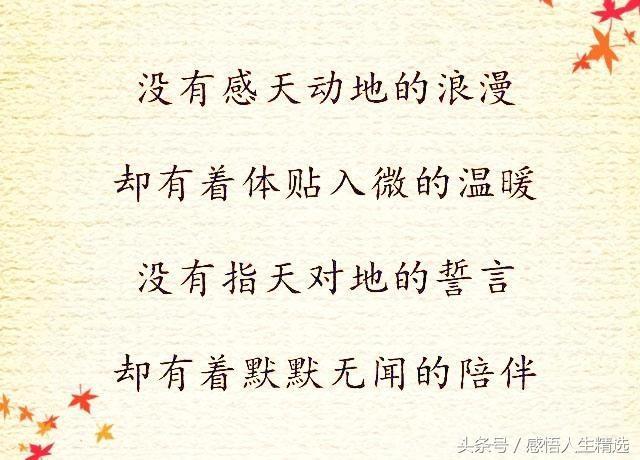 没有感天动地的浪漫
却有着体贴入微的温暖
没有指天对地的誓言
却有着默默无闻的陪伴
头条号 / 感悟人生精选